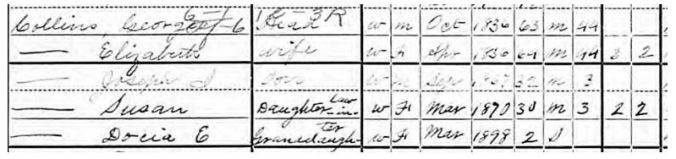 Collins, George Head w m Oct 1836 63 m 44
— Elizabeth wife w F Apr 1836 64 m 44 2 2
— Joseph S Son w m Sep 1867 32 m 3
— Susan Daughter-in-Law w F Mar 1870 30 m 3 2 2
— Docia E Granddaughter w F Mar 1898 2 S